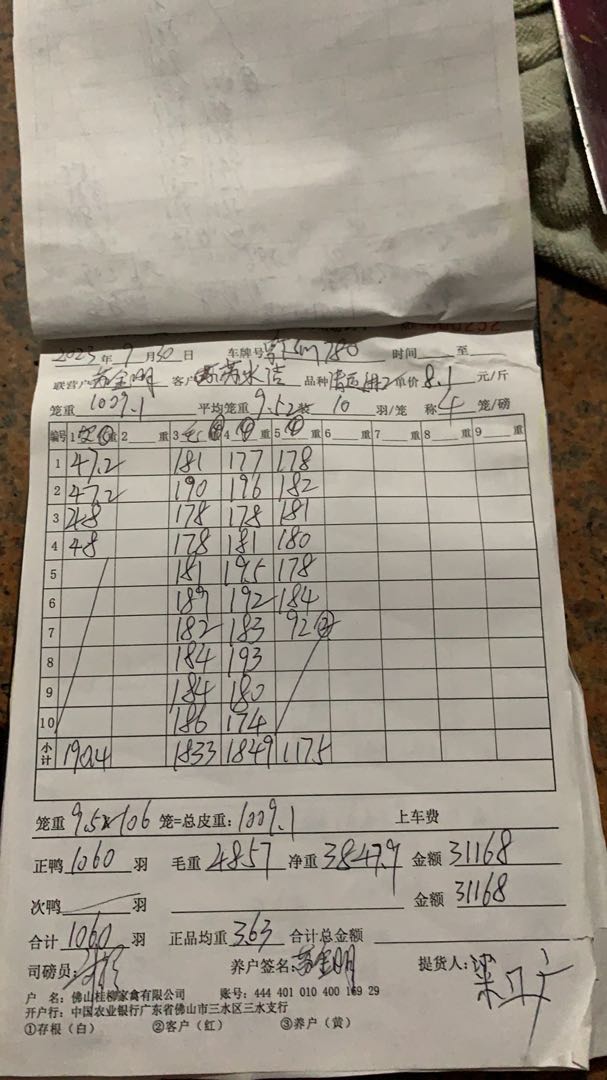 2023年9月30日 车牌号 780 时间 至
联营户 苏金明 客户 品种 单价 8.1 元/斤
笼重 1009.1 平均笼重 9.52 装 10 羽/笼 称 4 笼/磅
编号 1 重 2 重 3 毛 重 4 重 5 重 6 重 7 重 8 重 9 重
1 47.2 181 177 178
2 47.2 190 196 182
3 48 178 178 181
4 48 178 181 180
5 181 195 178
6 189 192 184
7 182 183 92 ②
8 184 193
9 184 180
10 186 174
小计 190.4 1833 1849 1175
笼重 9.52×106 笼=总皮重: 1009.1 上车费
正鸭 1060 羽 毛重 4857 净重 3847.9 金额 31168
次鸭 羽 金额 31168
合计 1060 羽 正品均重 3.63 合计总金额
司磅员: 养户签名: 苏金明 提货人: 梁
户 名: 佛山桂柳家禽有限公司 账号: 444 401 010 400 169 29
开户行: 中国农业银行广东省佛山市三水区三水支行
①存根（白） ②客户（红） ③养户（黄）